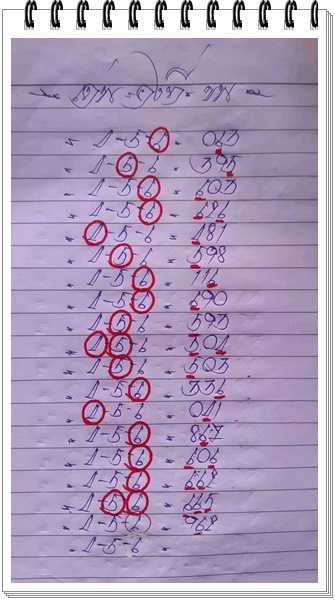 1-5-6 = 063
1-5-6 = 395
1-5-6 = 603
1-5-6 = 686
1-5-6 = 181
1-5-6 = 598
1-5-6 = 116
1-5-6 = 690
1-5-6 = 593
1-5-6 = 501
1-5-6 = 503
1-5-6 = 336
1-5-6 = 041
1-5-6 = 867
1-5-6 = 606
1-5-6 = 668
1-5-6 = 665
1-5-6 = 968
1-5-6 =